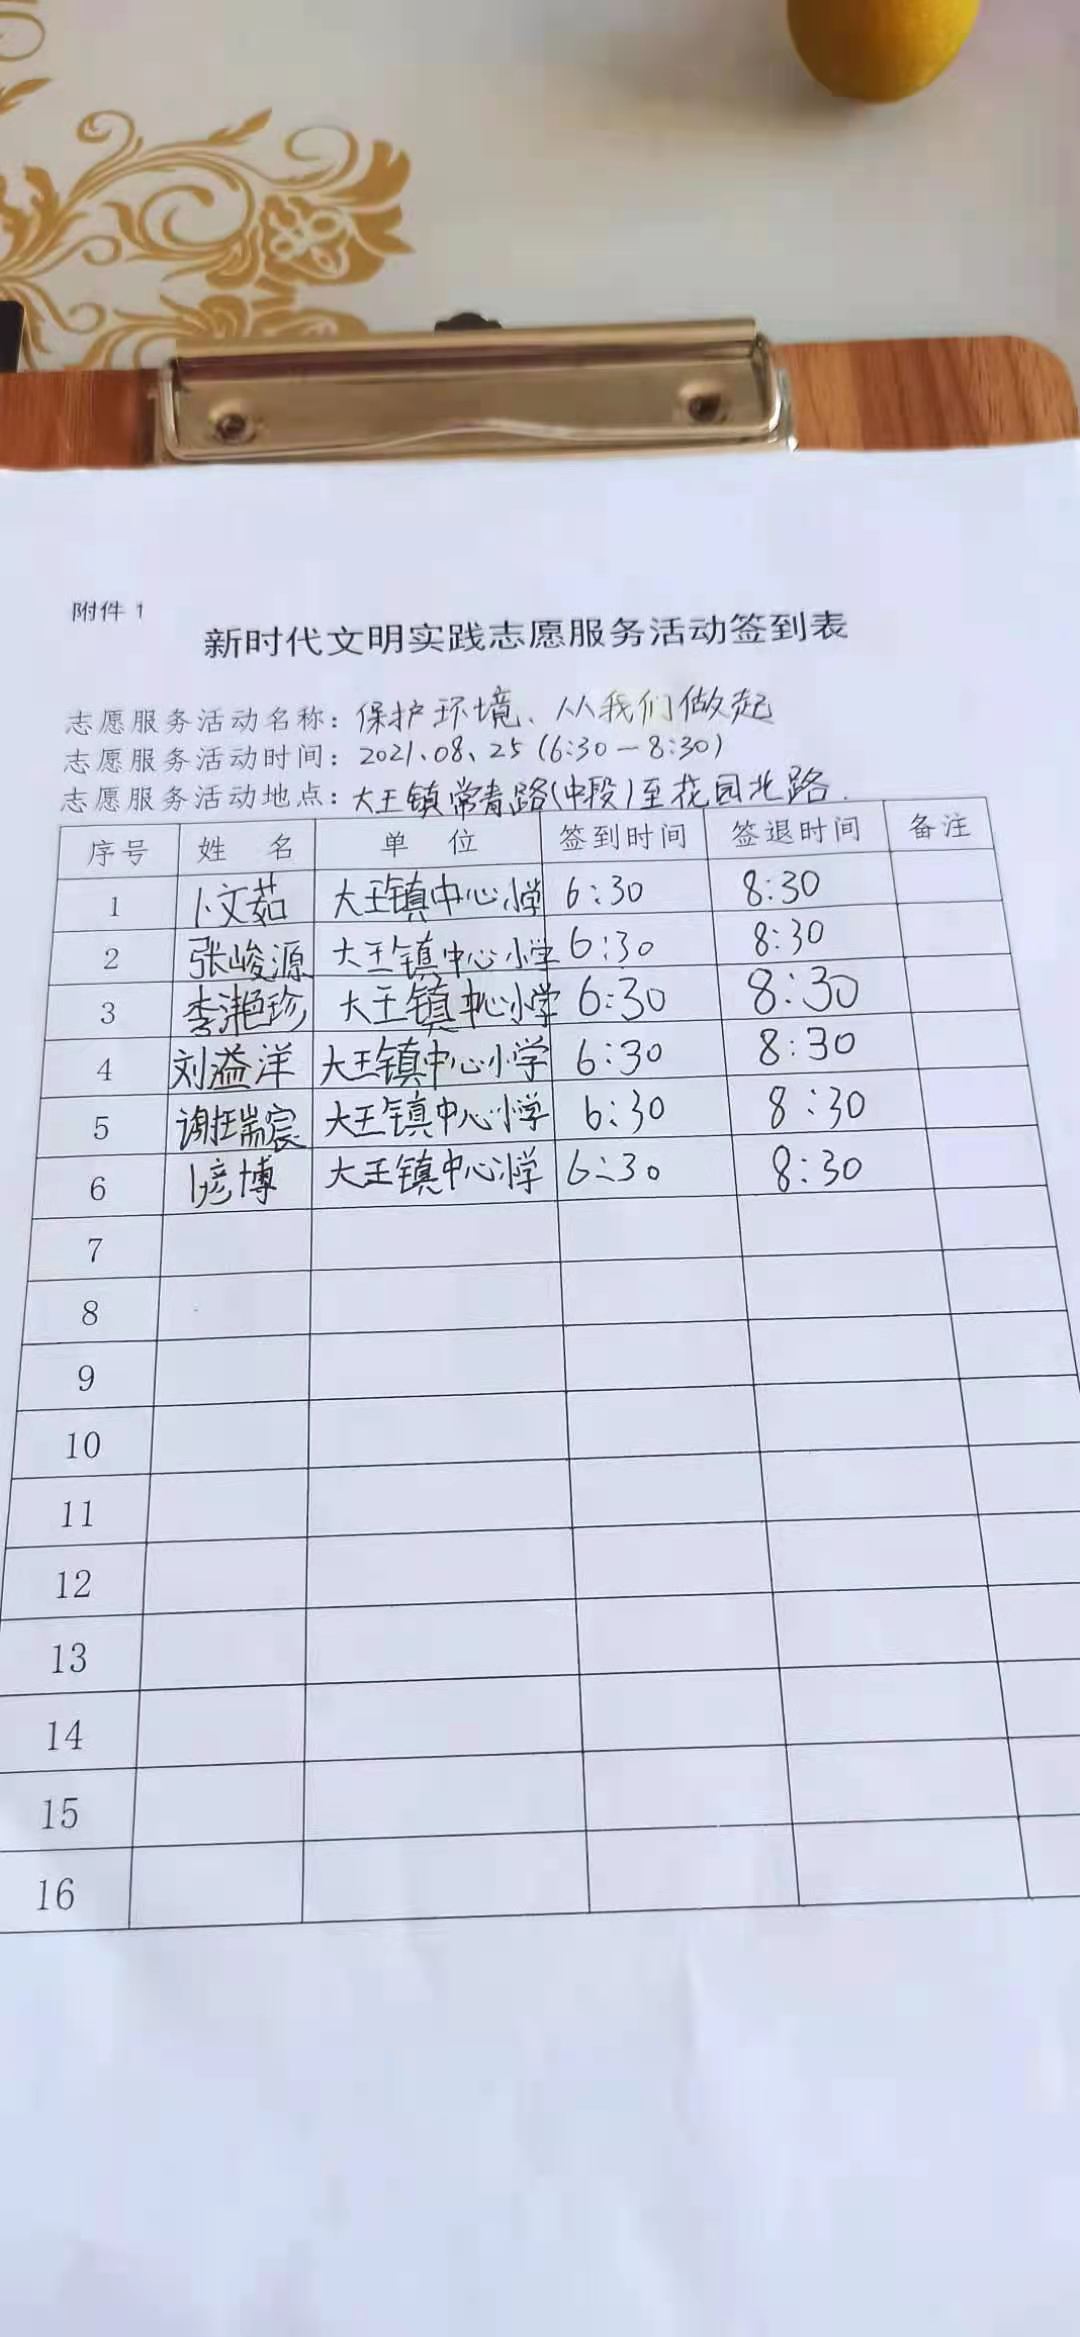 附件 1
新时代文明实践志愿服务活动签到表
志愿服务活动名称：保护环境、从我们做起
志愿服务活动时间：2021.08、25（6:30—8:30）
志愿服务活动地点：大王镇常青路(中段)至花园北路.
序号 姓 名 单 位 签到时间 签退时间 备注
1 卜文茹 大王镇中心小学 6:30 8:30
2 张峻源 大王镇中心小学 6:30 8:30
3 李滟珍 大王镇中心小学 6:30 8:30
4 刘益洋 大王镇中心小学 6:30 8:30
5 谢瑞宸 大王镇中心小学 6:30 8:30
6 卜彦博 大王镇中心小学 6:30 8:30
7
8
9
10
11
12
13
14
15
16